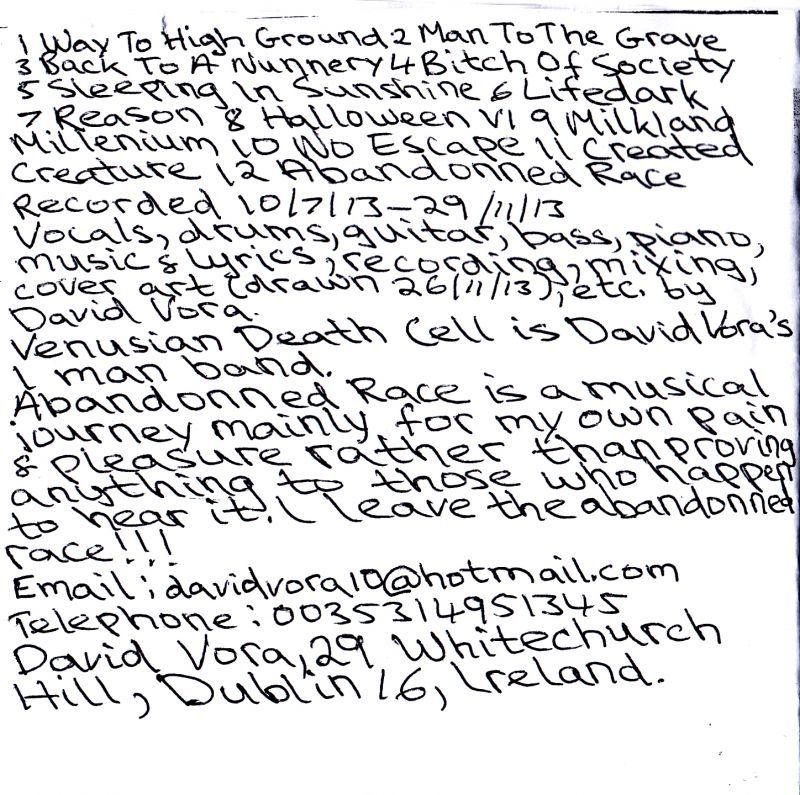 1 Way To High Ground 2 Man To The Grave
3 Back To A Nunnery 4 Bitch Of Society
5 Sleeping In Sunshine 6 Lifedark
7 Reason 8 Halloween VI 9 Milkland
Millenium 10 No Escape 11 Created
Creature 12 Abandonned Race
Recorded 10/7/13-29/11/13
Vocals, drums, guitar, bass, piano,
music & lyrics, recording, mixing,
cover art (drawn 26/11/13), etc. by
David Vora.
Venusian Death Cell is David Vora's
1 man band.
Abandonned Race is a musical
journey mainly for my own pain
& pleasure rather than proving
anything to those who happen
to hear it. I leave the abandonned
race!!!
Email: davidvora10@hotmail.com
Telephone: 0035314951345
David Vora, 29 Whitechurch
Hill, Dublin 16, Ireland.